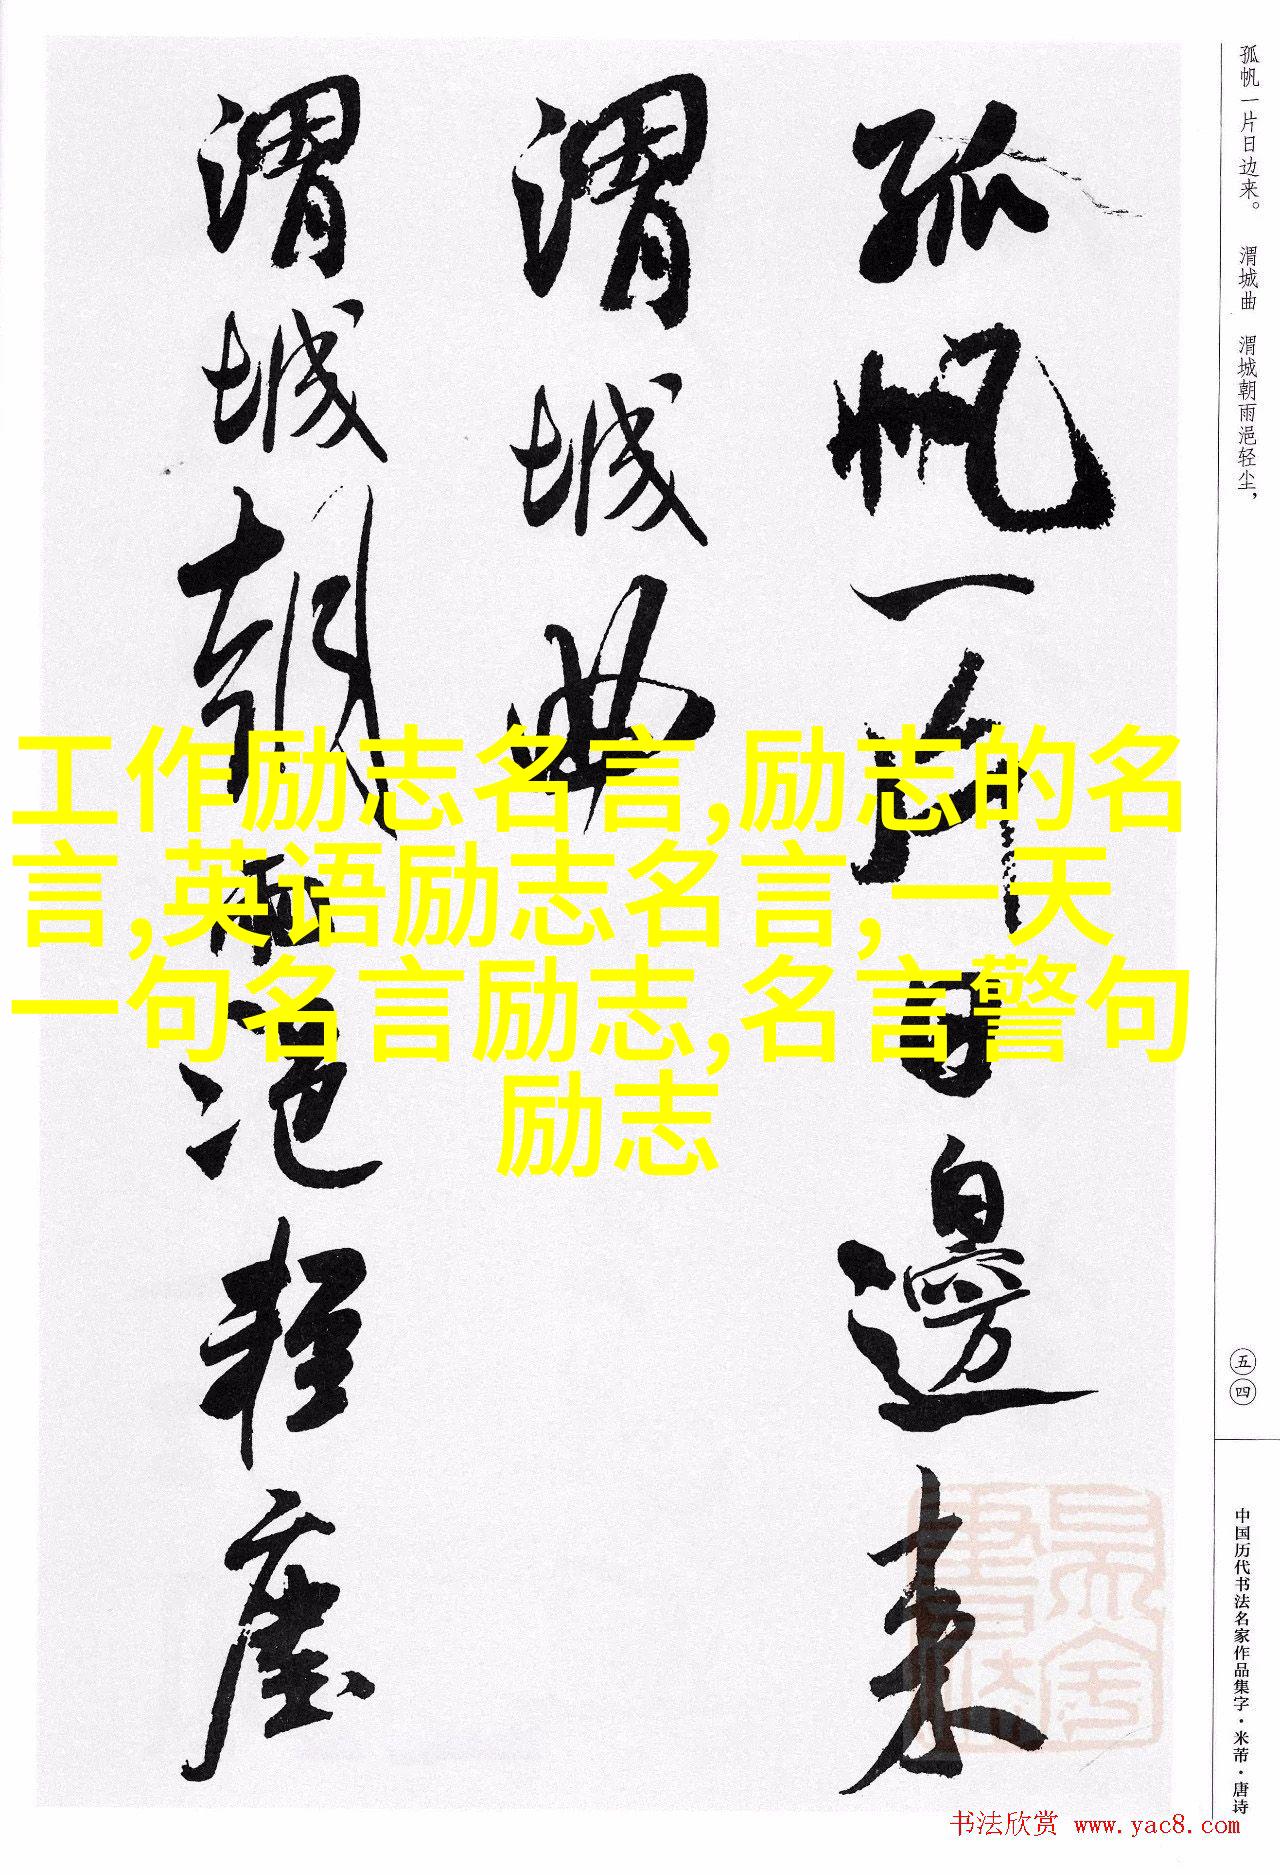 孤帆一片日边来。 渭城曲 渭城朝雨浥轻尘，
孤帆一片日邊来
渭城曲
渭城朝雨浥轻塵
工作励志名言,励志的名
言,英语励志名言,一天
一句名言励志,名言警句
励志
五四
中国历代书法名家作品集字·米芾·唐诗
书法欣赏 www.yac8.com